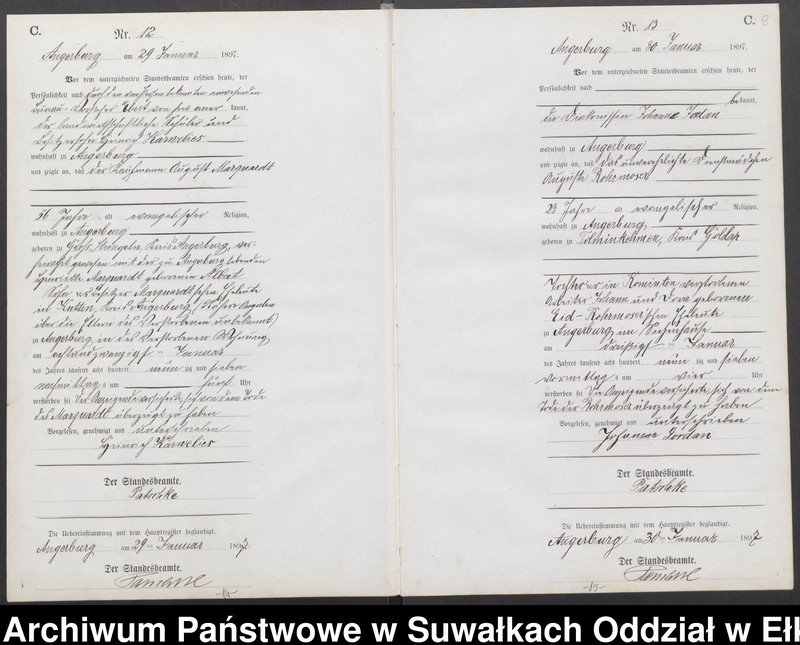 C.
Nr. 12
Angerburg am 29 Januar 1897.
Vor dem unterzeichneten Standesbeamten erschien heute, der
Persönlichkeit nach durch den
kannt,
der landwirthschaftliche Schüler und
Besitzersohn Heinrich Karwelies
wohnhaft zu Angerburg
und zeigte an, daß der Kaufmann August Marquardt
56 Jahre alt evangelischer Religion,
wohnhaft zu Angerburg
geboren zu Groß Strengeln, Kreis Angerburg, ver-
heirathet gewesen mit der zu Angerburg lebenden
Henriette Marquardt geborenen
Sohn der Besitzer Marquardt'schen Eheleute
in Kutten, Kreis Angerburg, (Nähere Angaben
über die Eltern des Verstorbenen unbekannt)
zu Angerburg, in des Verstorbenen Wohnung,
am achtundzwanzigsten Januar
des Jahres tausend acht hundert neunzig und sieben
nachmittags um fünf Uhr
verstorben sei. Der Anzeigende versicherte, sich von dem Tode
des Marquardt überzeugt zu haben
Vorgelesen, genehmigt und unterschrieben
Heinrich Karwelies
Der Standesbeamte.
Patschke
Die Uebereinstimmung mit dem Hauptregister beglaubigt.
Angerburg am 29 ten Januar 1897
Der Standesbeamte.
-14-
C. 8
Nr. 13
Angerburg am 30 Januar 1897.
Vor dem unterzeichneten Standesbeamten erschien heute, der
Persönlichkeit nach
bekannt,
die Diakonissin Johanne Jordan
wohnhaft zu Angerburg
und zeigte an, daß das unverehelichte Dienstmädchen
Auguste Rohrmoser
23 Jahre alt evangelischer Religion,
wohnhaft zu Angerburg,
geboren zu Tolmingkehmen, Kreis Goldap
Tochter der in Rominten verstorbenen
Arbeiter Johann und Dora geborenen
Eid-Rohrmoser'schen Eheleute
zu Angerburg im Siechenhause
am dreißigsten Januar
des Jahres tausend acht hundert neunzig und sieben
vormittags um vier Uhr
verstorben sei. Die Anzeigende versicherte, sich von dem
Tode der Rohrmoser überzeugt zu haben
Vorgelesen, genehmigt und unterschrieben
Johanne Jordan
Der Standesbeamte.
Patschke
Die Uebereinstimmung mit dem Hauptregister beglaubigt.
Angerburg am 30 ten Januar 1897
Der Standesbeamte.
-15-
Archiwum Państwowe w Suwałkach Oddział w Ełk